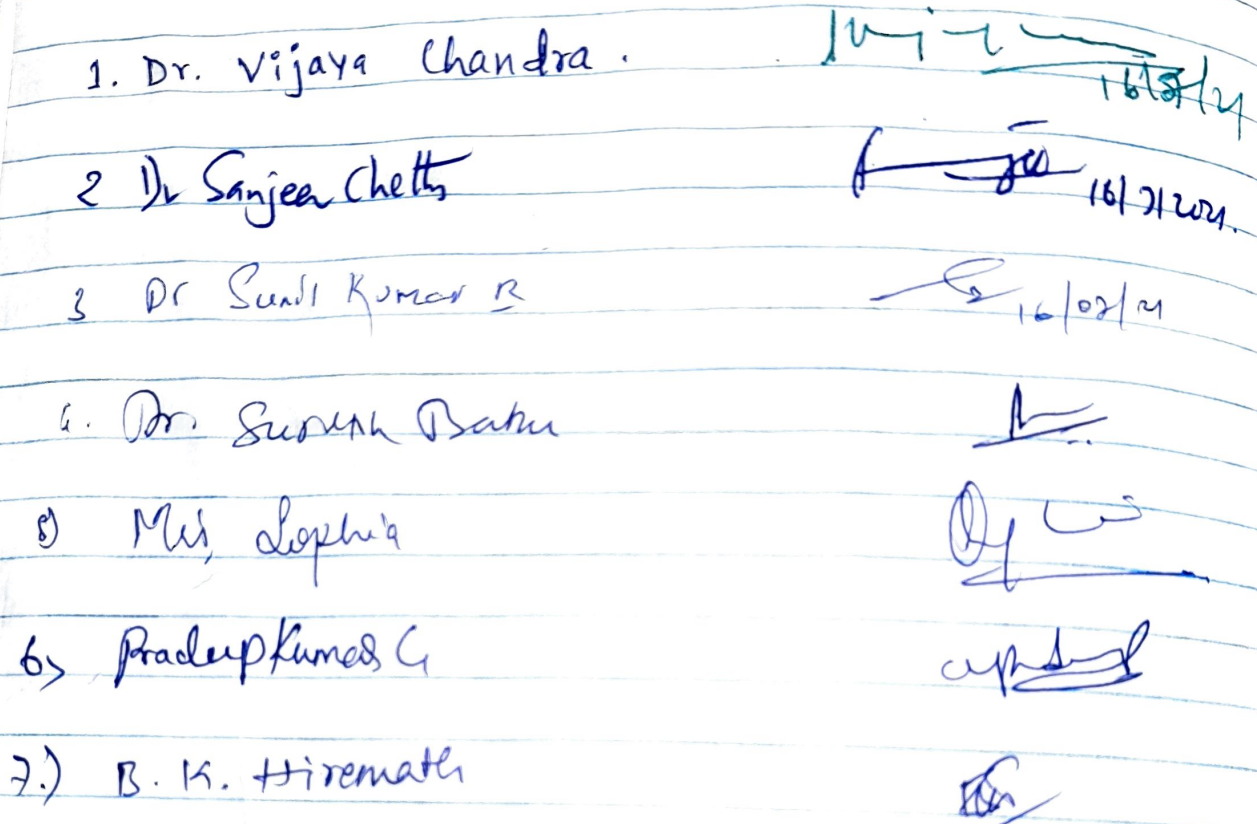 1. Dr. Vijaya Chandra.
2 Dr Sanjeev Chetty 16/7/2021.
3 Dr Sunil Kumar R 16/07/21
4. Dr. Suresh Babu
5) Mrs, Sophia
6) Pradeep Kumar G
7.) B. K. Hiremath